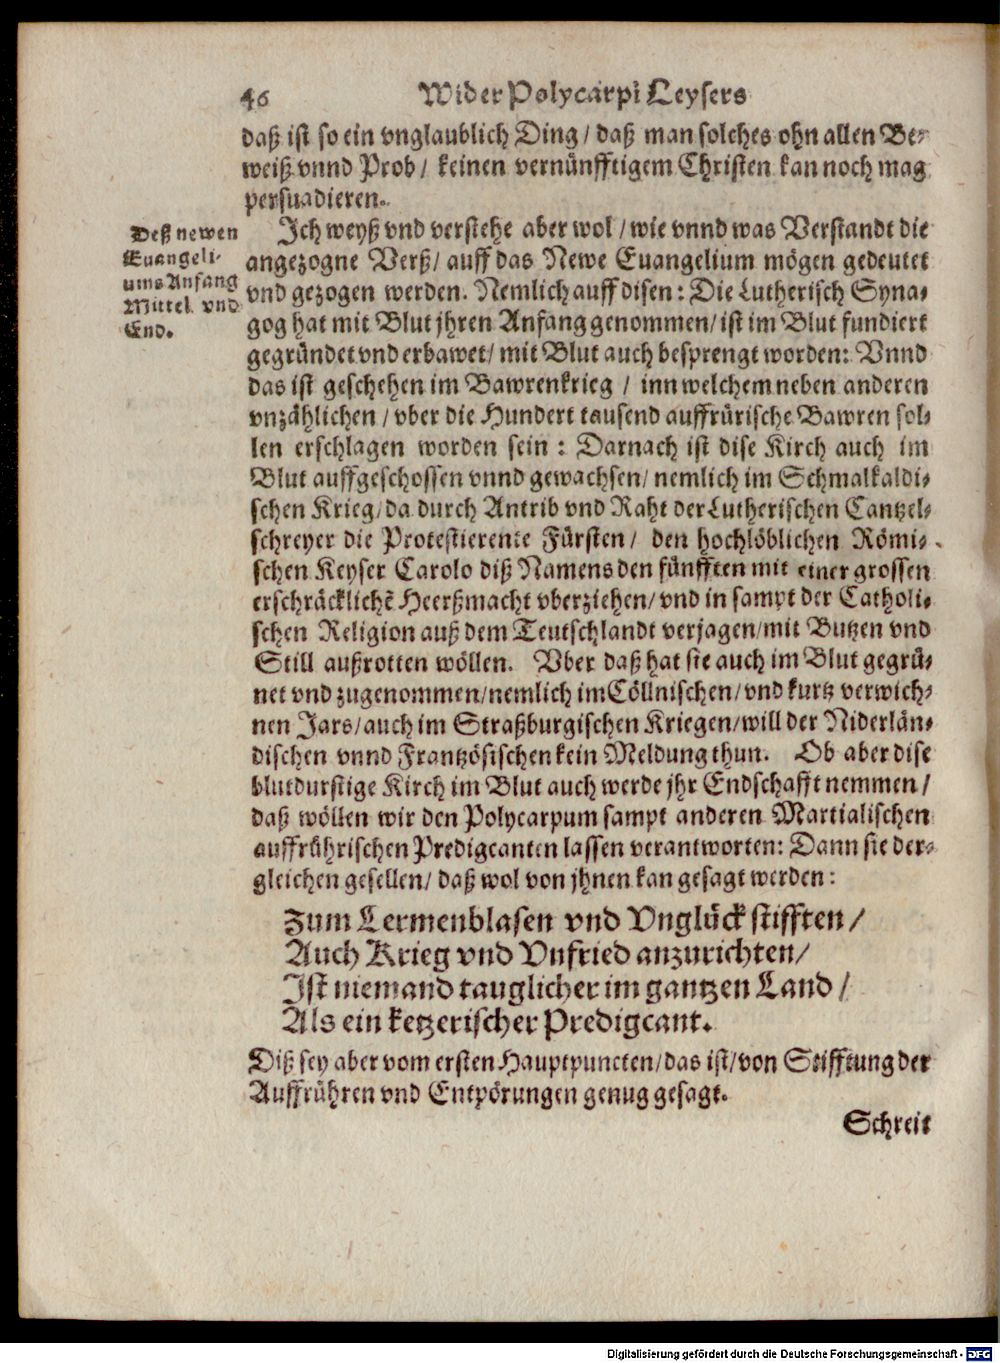 46 Wider Polycarpi Leysers
daß ist so ein vnglaublich Ding / daß man solches ohn allen Be-
weiß vnnd Prob / keinen vernünfftigem Christen kan noch mag
persuadieren.
Deß newen
Euangeli-
ums Anfang
Mittel vnd
End.
Ich weyß vnd verstehe aber wol / wie vnnd was Verstandt die
angezogne Verß / auff das Newe Euangelium mögen gedeutet
vnd gezogen werden. Nemlich auff disen : Die Lutherisch Syna-
gog hat mit Blut jhren Anfang genommen / ist im Blut fundiert
gegründet vnd erbawet / mit Blut auch besprengt worden: Vnnd
das ist geschehen im Bawrenkrieg / inn welchem neben anderen
vnzählichen / vber die Hundert tausend auffrürische Bawren sol-
len erschlagen worden sein : Darnach ist dise Kirch auch im
Blut auffgeschossen vnnd gewachsen / nemlich im Schmalkaldi-
schen Krieg / da durch Antrib vnd Raht der Lutherischen Cantzel-
schreyer die Protestierente Fürsten / den hochlöblichen Römi-
schen Keyser Carolo diß Namens den fünfften mit einer grossen
erschräcklichẽ Heerßmacht vberziehen / vnd in sampt der Catholi-
schen Religion auß dem Teutschlandt verjagen / mit Butzen vnd
Still außrotten wöllen. Vber daß hat sie auch im Blut gegrü-
net vnd zugenommen / nemlich im Cöllnischen / vnd kurtz verwich-
nen Jars / auch im Straßburgischen Kriegen / will der Niderlän-
dischen vnnd Frantzösischen kein Meldung thun. Ob aber dise
blutdurstige Kirch im Blut auch werde jhr Endschafft nemmen /
daß wöllen wir den Polycarpum sampt anderen Martialischen
auffrührischen Predigcanten lassen verantworten: Dann sie der-
gleichen gesellen / daß wol von jhnen kan gesagt werden :
Zum Lermenblasen vnd Vnglück stifften /
Auch Krieg vnd Vnfried anzurichten /
Ist niemand tauglicher im gantzen Land /
Als ein ketzerischer Predigcant.
Diß sey aber vom ersten Hauptpuncten / das ist / von Stifftung der
Auffrühren vnd Entpörungen genug gesagt.
Schreit
Digitalisierung gefördert durch die Deutsche Forschungsgemeinschaft - DFG